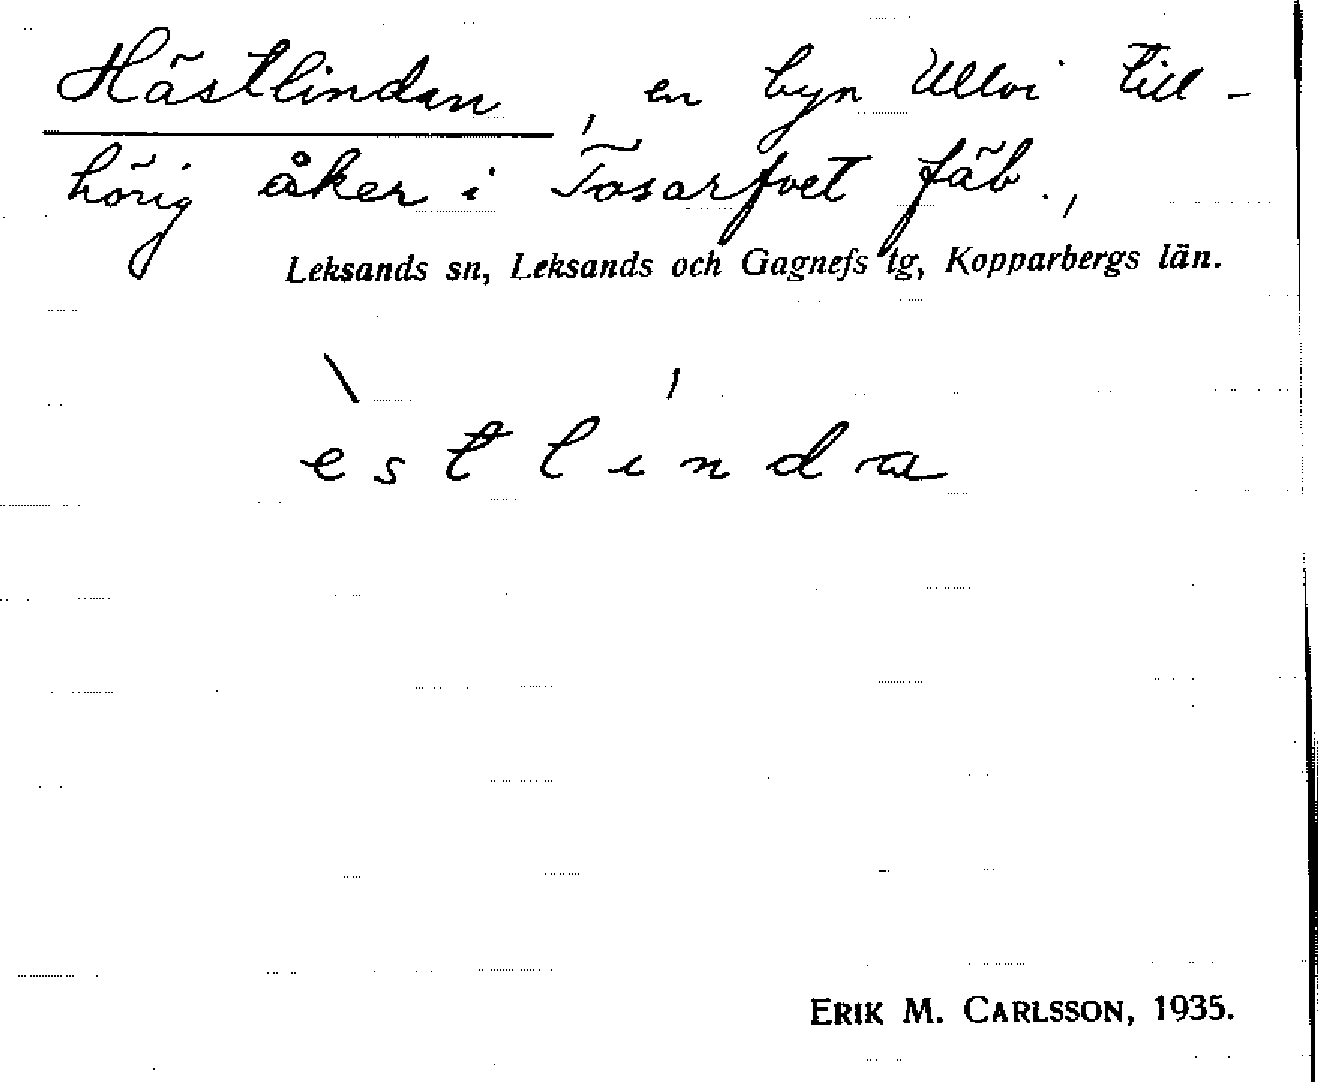 Hästlindan, en byn Ullvi till-
hörig åker i Tosarfvet fäb.,
Leksands sn, Leksands och Gagnefs tg, Kopparbergs län.
èstlínda
ERIK M. CARLSSON, 1935.